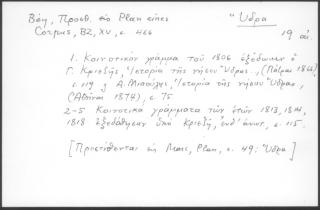 Βέη, Προσθ. εἰς Plan eines
Corpus, BZ, XV, σ. 466
Ὕδρα
19 αἰ.
1. Κοινοτικὸν γράμμα τοῦ 1806 ἐξέδωκεν ὁ
Γ. Κριεζῆς, Ἱστορία τῆς νήσου Ὕδρας, (Πάτραι
σ. 119 Α. Μιαούλης, Ἱστορία τῆς νήσου Ὕδρας,
(Ἀθῆναι 1874), σ. 75
2-5 Κοινοτικὰ γράμματα τῶν ἐτῶν 1813, 1814,
1818 ἐξεδόθησαν ὑπὸ Κριεζῆ, ἔνθ' ἀνωτ., σ. 115.
[Προστίθενται εἰς Marc, Plan, σ. 49: Ὕδρα]